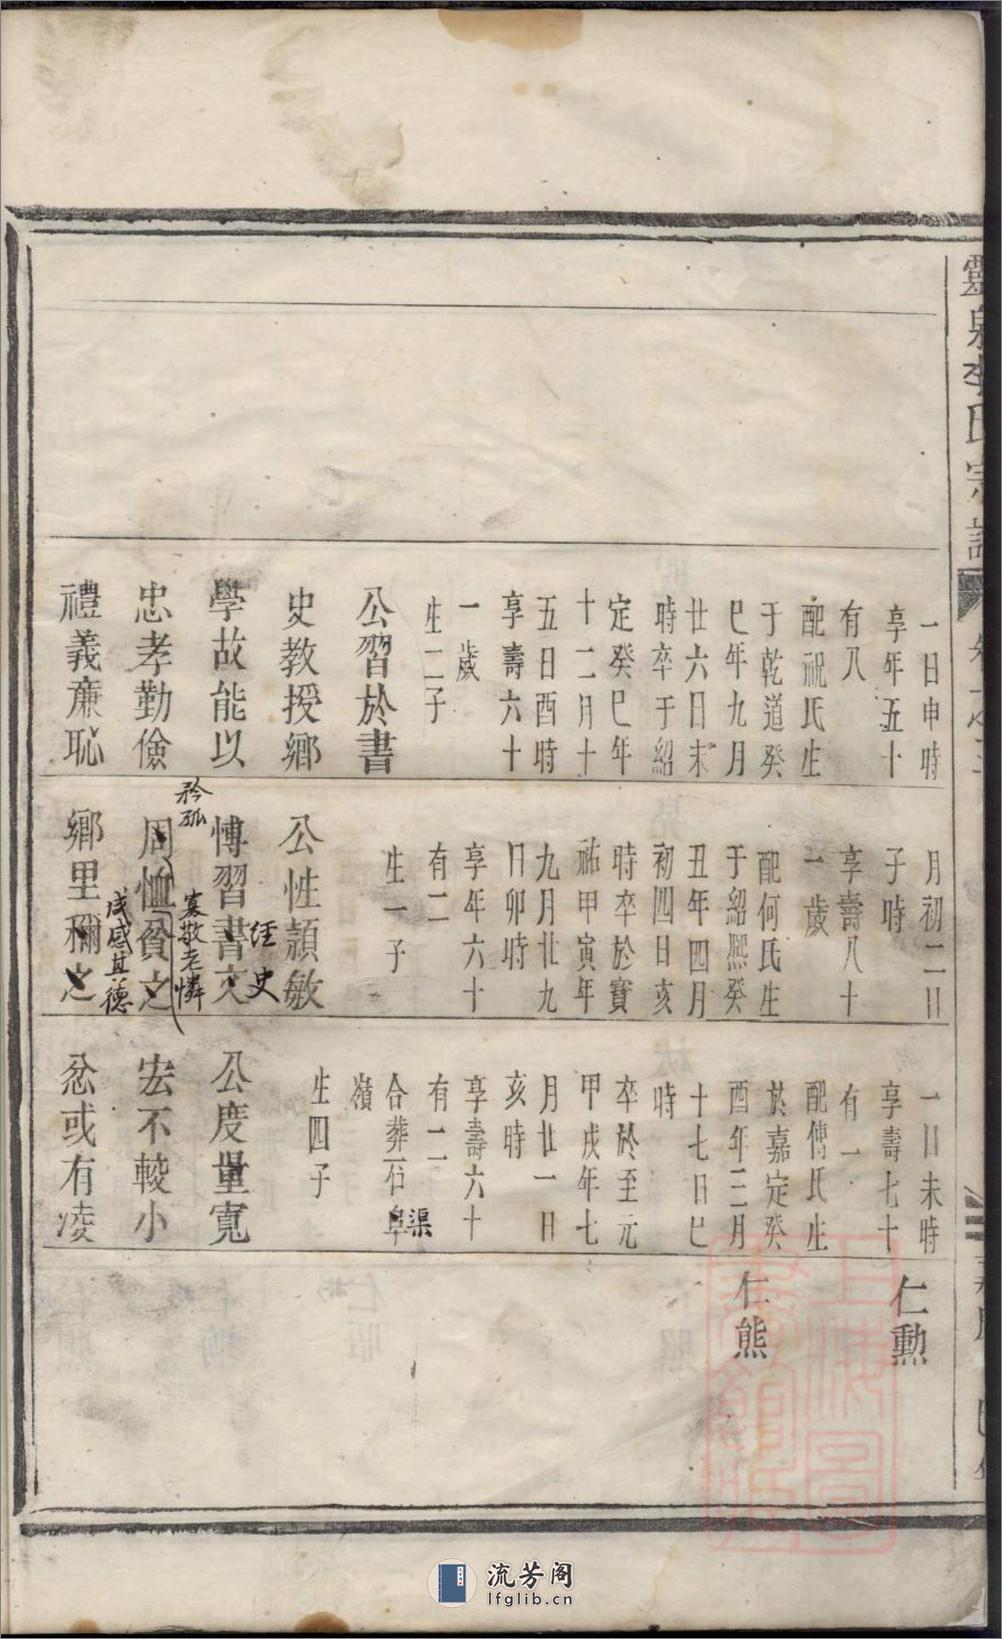 一日申時
享年五十
有八
配祝氏生
于乾道癸
巳年九月
廿六日未
時卒于紹
定癸巳年
十二月十
五日酉時
享壽六十
一歲
生二子
公習於書
史教授鄉
學故能以
忠孝勤儉
禮義亷恥
月初二日
子時
享壽八十
一歲
配何氏生
于紹熙癸
丑年四月
初四日亥
時卒於寶
祐甲寅年
九月廿九
日卯時
享年六十
有二
生一子
公性頴敏
經史
博習書文
矜孤
寡敬老憐
周恤貧之
咸感其德
鄉里稱之
一日未時
享壽七十
有一
配傅氏生
於嘉定癸
酉年三月
十七日巳
時
卒於至元
甲戌年七
月廿一日
亥時
享壽六十
有二
渠
合葬石阜
嶺
生四子
公度量寬
宏不較小
忿或有凌
仁勲
仁熊
流芳阁
lfglib.cn